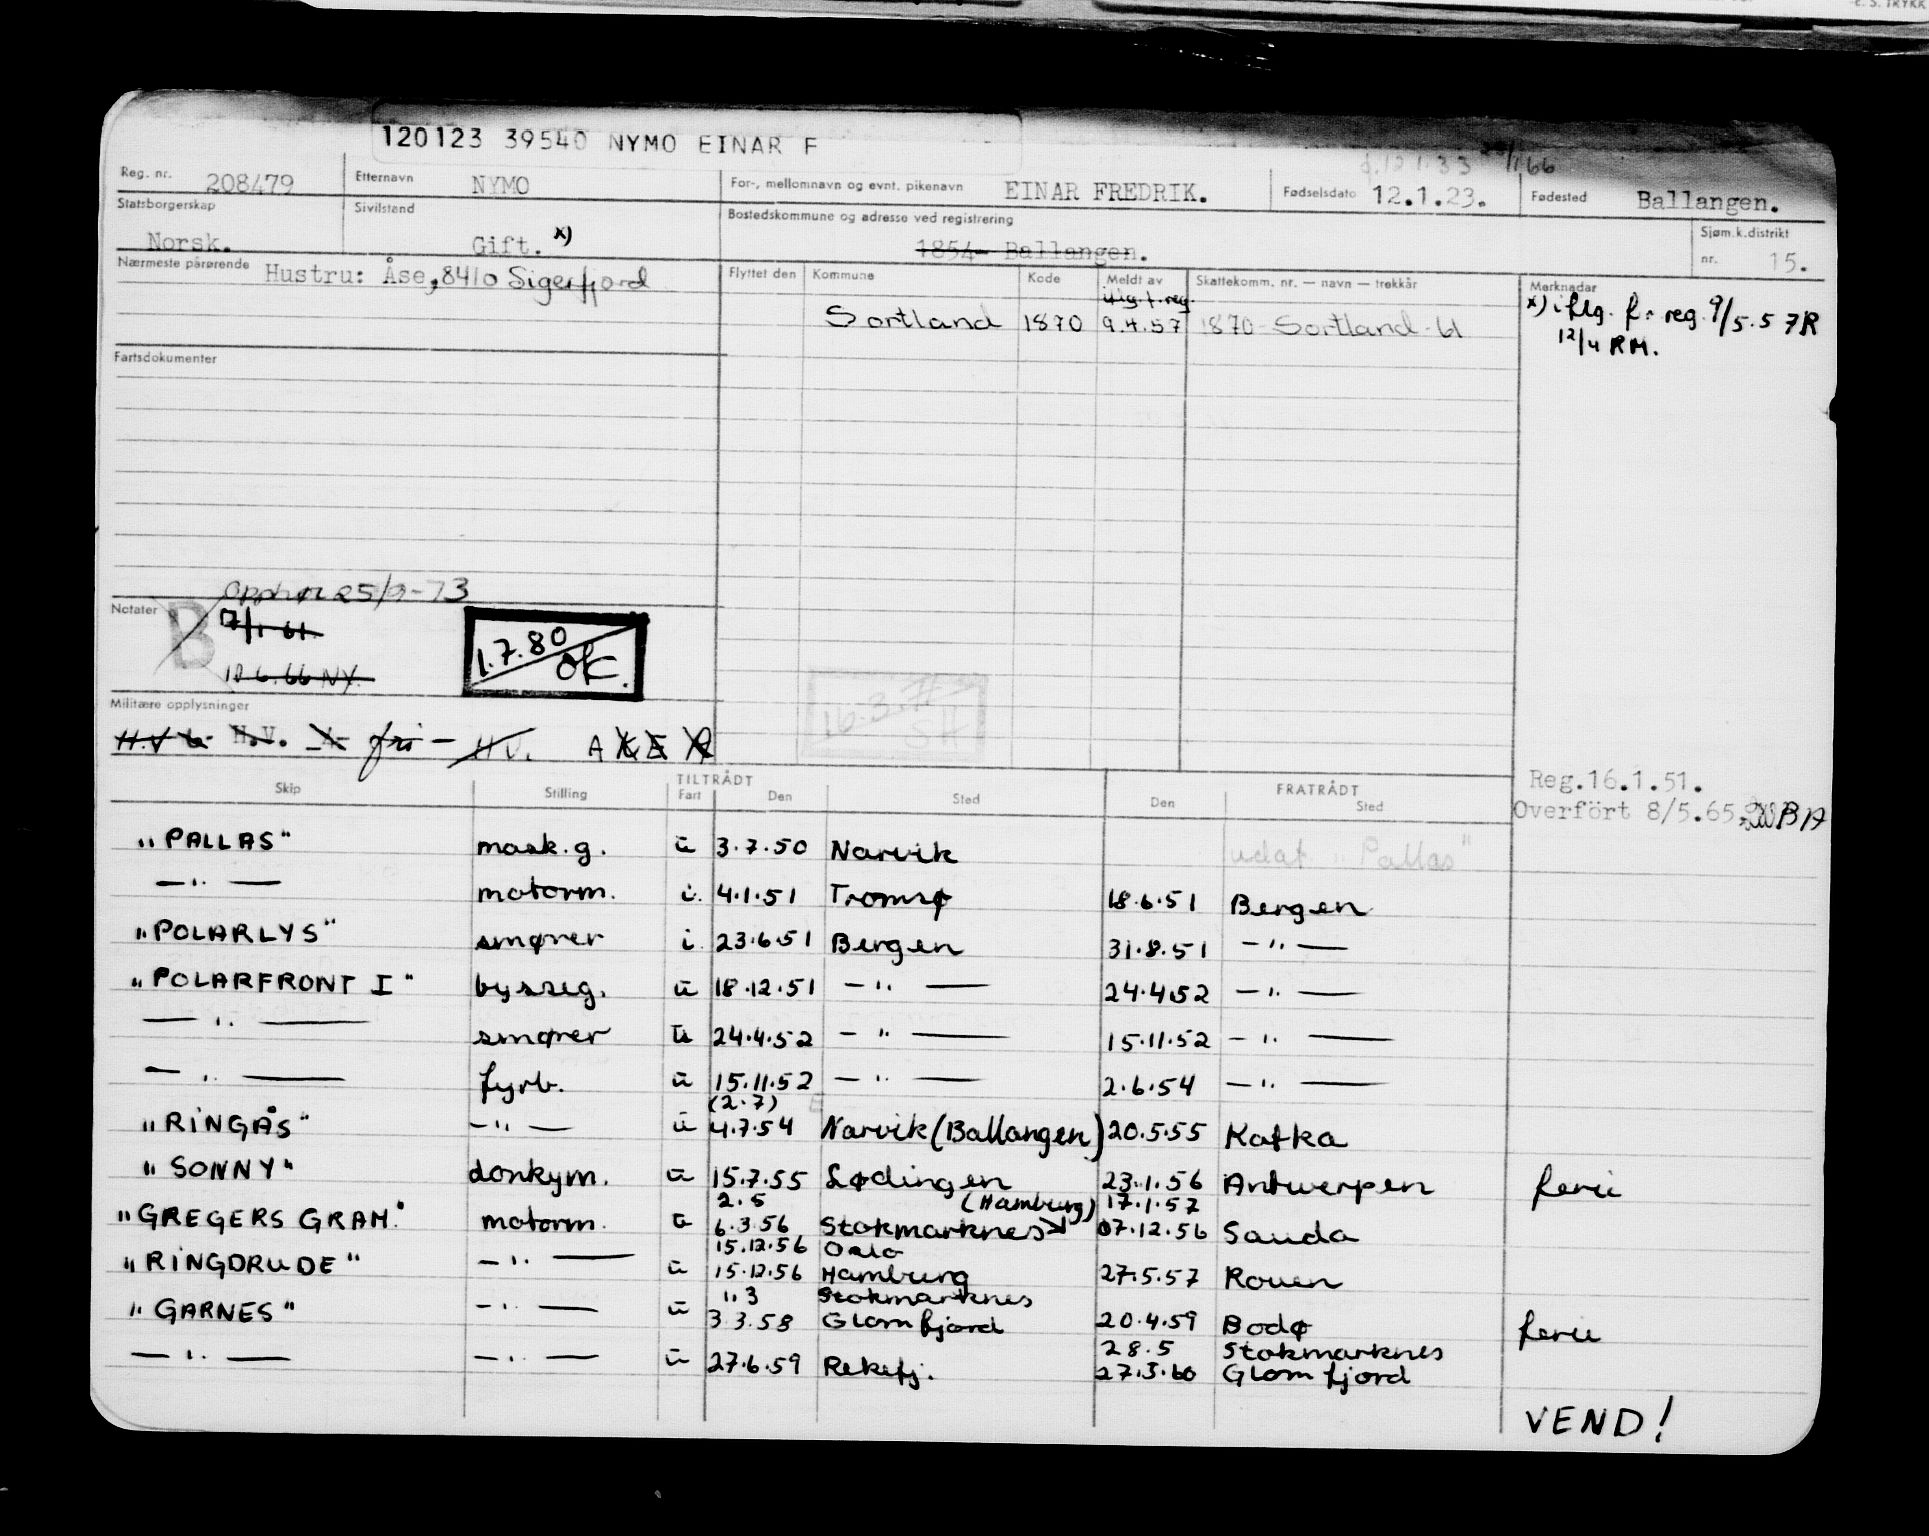 120123 39540 NYMO EINAR F
Reg. nr. 208479 Etternavn NYMO For-, mellomnavn og evnt. pikenavn EINAR FREDRIK. Fødselsdato 12.1.23. Fødested Ballangen.
Statsborgerskap Norsk. Sivilstand Gift. x) Bostedskommune og adresse ved registrering 1854- Ballangen. Sjøm.k.distrikt nr. 15.
Nærmeste pårørende Hustru: Åse, 8410 Sigerfjord
Flyttet den Kommune Kode Meldt av Skattekomm. nr. — navn — trekkår Merknader
iflg. f. reg.
Sortland 1870 9.4.57 1870 - Sortland - 61
x) iflg. f. reg. 9/5.57 R
12/4 RM.
Fartsdokumenter
Opphør 25/9-73
Notater B 17/1 61
1.7.80 OK.
10.6.66 NY.
16.3.7 SH
Militære opplysninger
H.V. H.V. fri — H.V. A
Reg.16.1.51.
Overfört 8/5.65
Skip Stilling TILTRÅDT Fart Den Sted FRATRÅDT Den Sted
"PALLAS" mask.g. u 3.7.50 Narvik udat "Pallas"
— " — motorm. i. 4.1.51 Tromsø 18.6.51 Bergen
"POLARLYS" smører i. 23.6.51 Bergen 31.8.51 — " —
"POLARFRONT I" byssg. u 18.12.51 — " — 24.4.52 — " —
— " — smører u 24.4.52 — " — 15.11.52 — " —
— " — fyrb. u 15.11.52 — " — 2.6.54 — " —
(2.7)
"RINGÅS" — " — u 4.7.54 Narvik (Ballangen) 20.5.55 Kafka
"SONNY" donkym. u 15.7.55 Lødingen 23.1.56 Antwerpen ferie
2.5 (Hamburg) 17.1.57
"GREGERS GRAM." motorm. u 6.3.56 Stokmarknes 07.12.56 Sauda
15.12.56 Oslo
"RINGDRUDE" — " — u 15.12.56 Hamburg 27.5.57 Rouen
1.3 Stokmarknes
"GARNES" — " — u 3.3.58 Glomfjord 20.4.59 Bodø ferie
28.5 Stokmarknes
— " — — " — u 27.6.59 Rekefj. 27.3.60 Glomfjord
VEND!